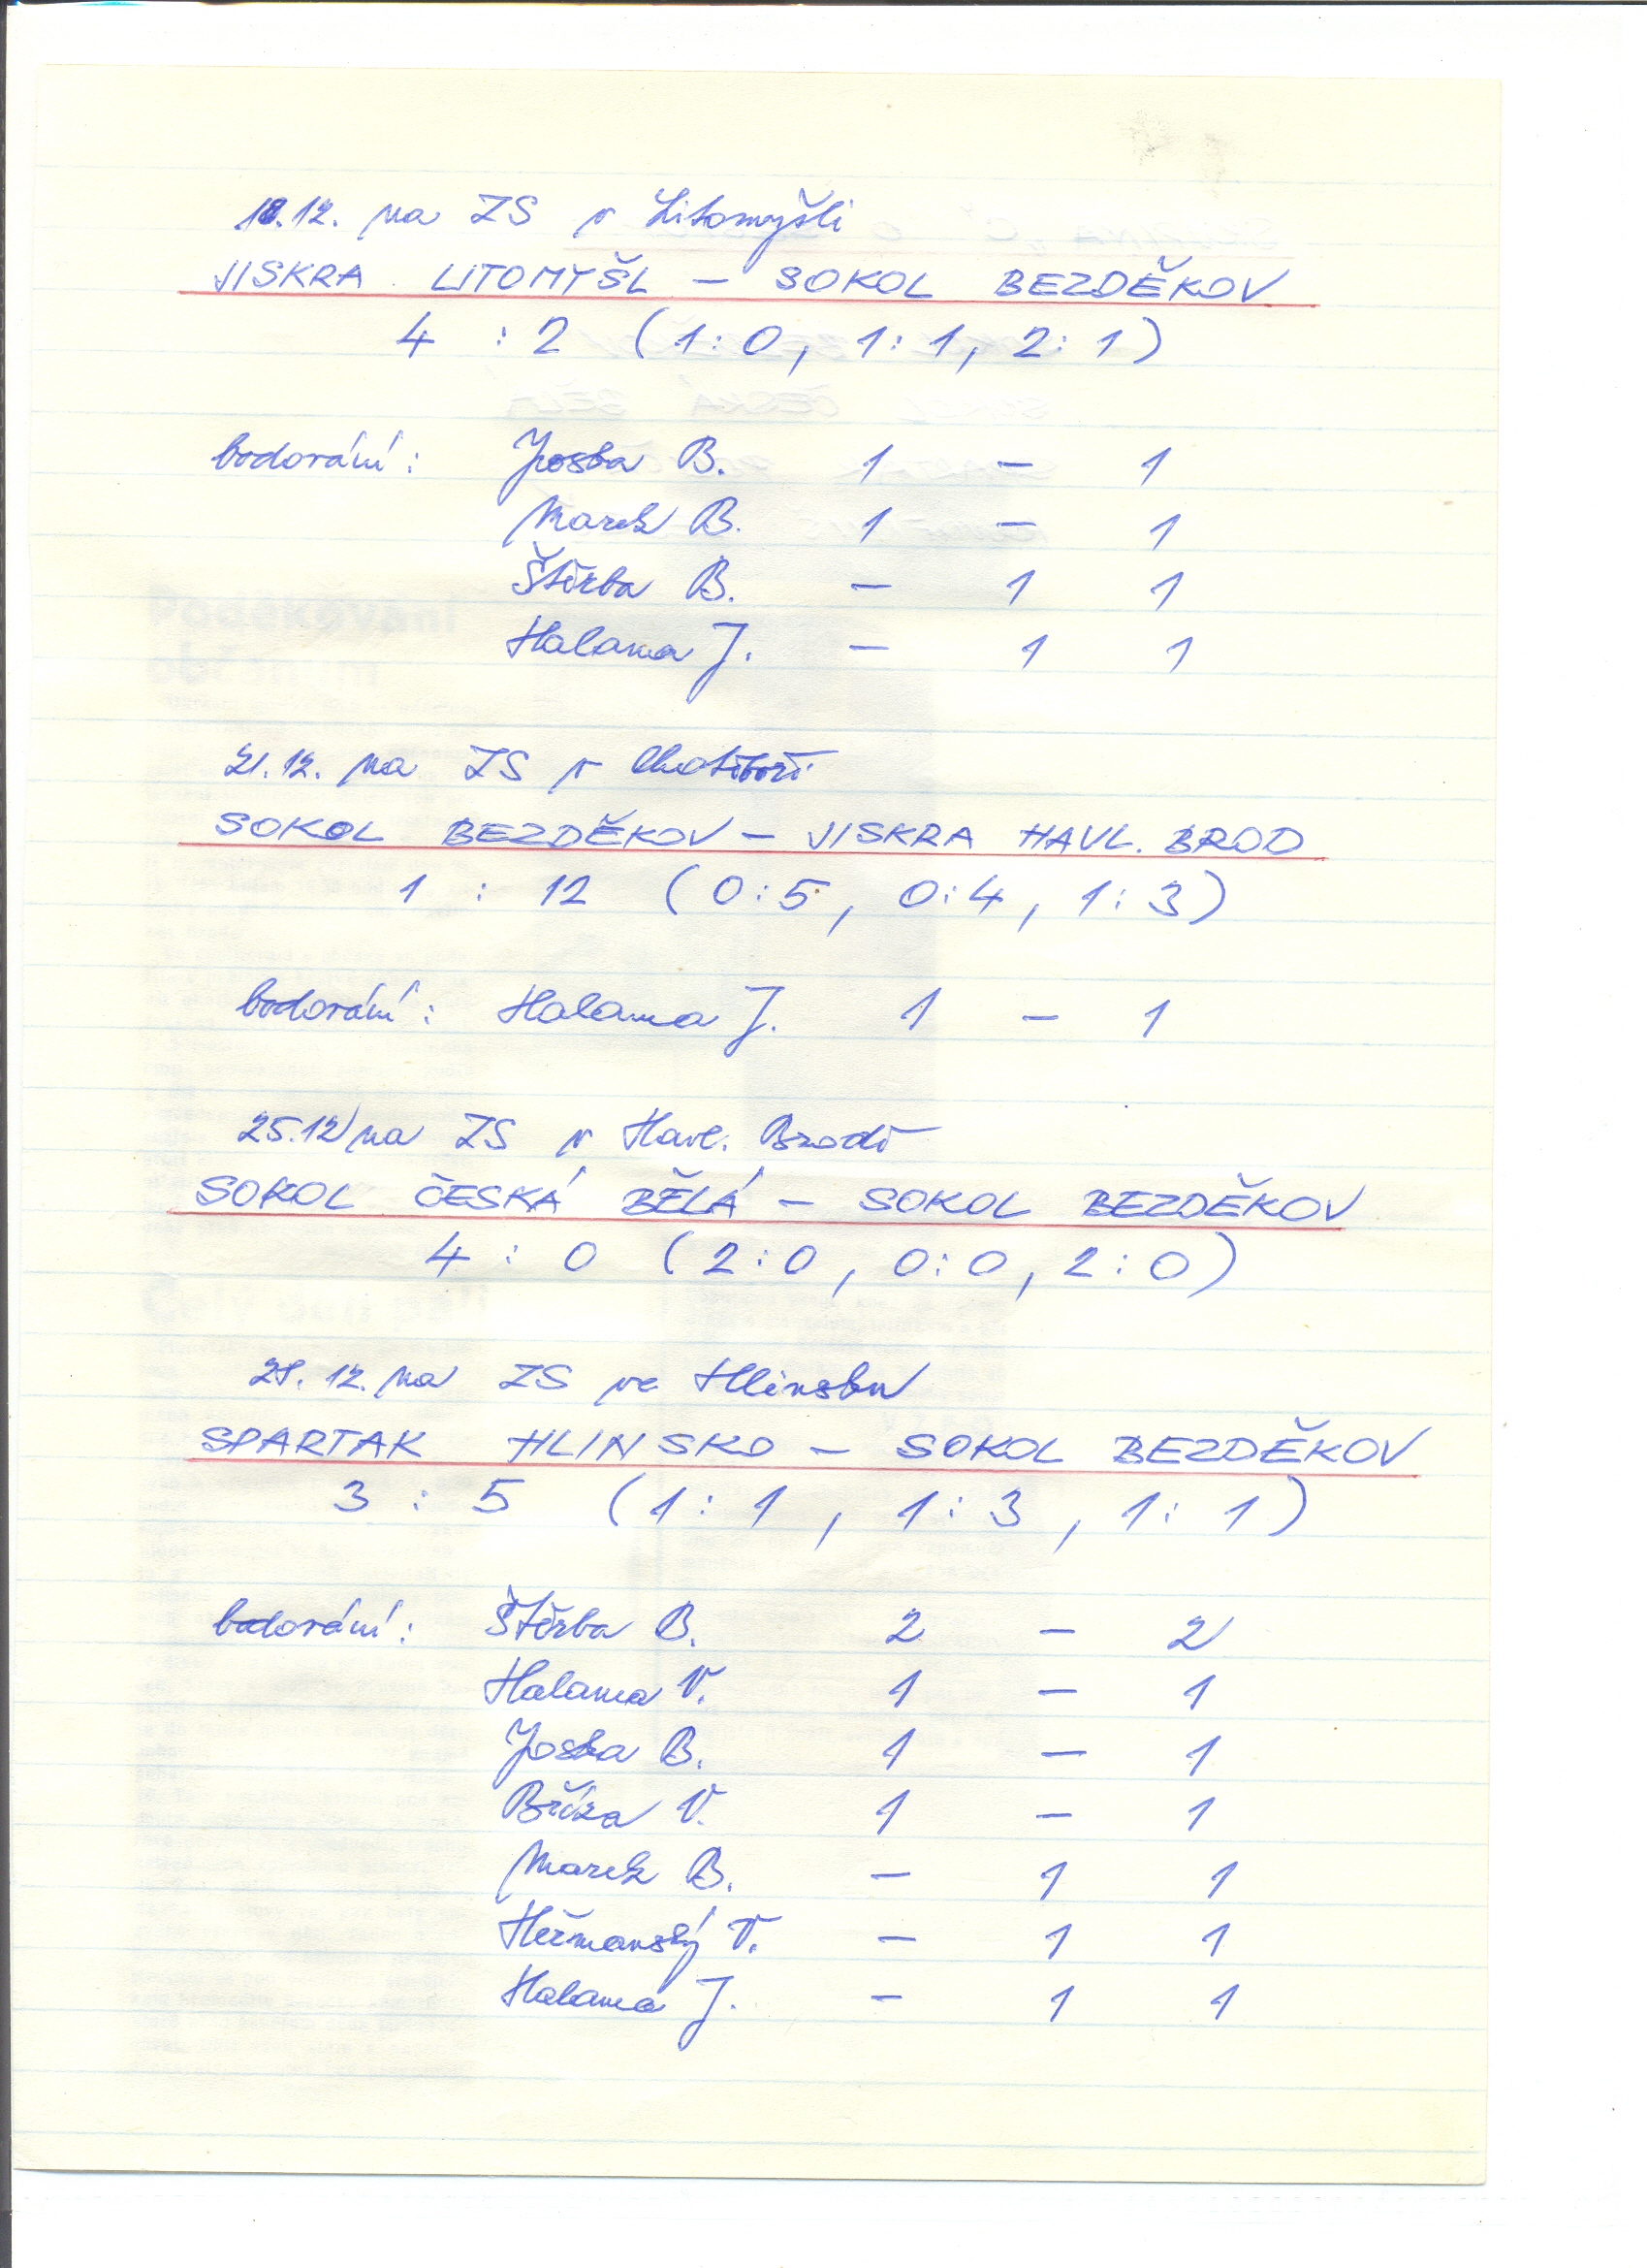 18.12. na ZS v Litomyšli
JISKRA LITOMYŠL – SOKOL BEZDĚKOV
4 : 2 (1:0, 1:1, 2:1)
bodování: Joska B. 1 – 1
Marek B. 1 – 1
Štěrba B. – 1 1
Halama J. – 1 1
21.12. na ZS v Chotěboři
SOKOL BEZDĚKOV – JISKRA HAVL. BROD
1 : 12 (0:5, 0:4, 1:3)
bodování: Halama J. 1 – 1
25.12 na ZS v Havl. Brodě
SOKOL ČESKÁ BĚLÁ – SOKOL BEZDĚKOV
4 : 0 (2:0, 0:0, 2:0)
12. na ZS ve Hlinsku
SPARTAK HLINSKO – SOKOL BEZDĚKOV
3 : 5 (1:1, 1:3, 1:1)
bodování: Štěrba B. 2 – 2
Halama V. 1 – 1
Joska B. 1 – 1
Bříza V. 1 – 1
Marek B. – 1 1
Heřmanský V. – 1 1
Halama J. – 1 1